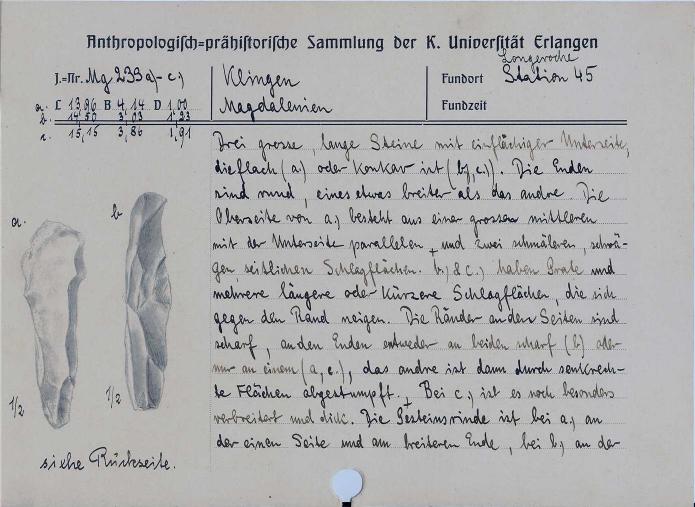 Anthropologisch=prähistorische Sammlung der K. Universität Erlangen
J.=Nr. Mg 233a)-c)
Klingen
Magdalenien
Fundort Longeroche
Station 45
Fundzeit
a. L 13,96 B 4,14 D 1,00
b. 14,50 3,03 1,33
c. 15,15 3,86 1,91
Drei grosse, lange Steine mit einflächiger Unterseite,
die flach (a) oder konkav ist (b), c)). Die Enden
sind rund, eines etwas breiter als das andre. Die
Oberseite von a) besteht aus einer grossen mittleren
mit der Unterseite parallelen + und zwei schmäleren, schrä-
gen seitlichen Schlagflächen. b) & c) haben Grate und
mehrere längere oder kürzere Schlagflächen, die sich
gegen den Rand neigen. Die Ränder an den Seiten sind
scharf, an den Enden entweder an beiden scharf (b) oder
nur an einem (a, c.), das andre ist dann durch senkrech-
te Flächen abgestumpft. + Bei c) ist es noch besonders
verbreitert und dick. Die Gesteinsrinde ist bei a) an
der einen Seite und am breiteren Ende, bei b) an der
a.
b
1/2
1/2
siehe Rückseite.